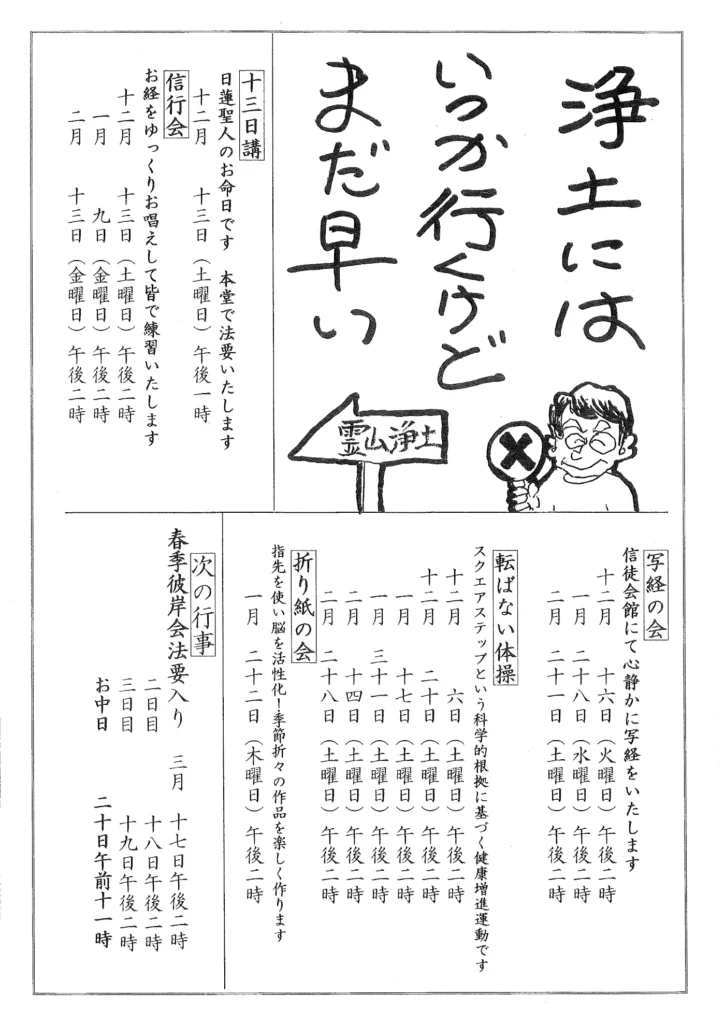 浄土には
いつか行くけど
まだ早い
霊山浄土
十三日講
日蓮聖人のお命日です　本堂で法要いたします
十二月　十三日（土曜日）午後一時
信行会
お経をゆっくりお唱えして皆で練習いたします
十二月　十三日（土曜日）午後二時
一月　九日（金曜日）午後二時
二月　十三日（金曜日）午後二時
写経の会
信徒会館にて心静かに写経をいたします
十二月　十六日（火曜日）午後二時
一月　二十八日（水曜日）午後二時
二月　二十一日（土曜日）午後二時
転ばない体操
スクエアステップという科学的根拠に基づく健康増進運動です
十二月　六日（土曜日）午後二時
十二月　二十日（土曜日）午後二時
一月　十七日（土曜日）午後二時
一月　三十一日（土曜日）午後二時
二月　十四日（土曜日）午後二時
二月　二十八日（土曜日）午後二時
折り紙の会
指先を使い脳を活性化！季節折々の作品を楽しく作ります
一月　二十二日（木曜日）午後二時
次の行事
春季彼岸会法要入り　三月　十七日午後二時
二日目　十八日午後二時
三日目　十九日午後二時
お中日　二十日午前十一時